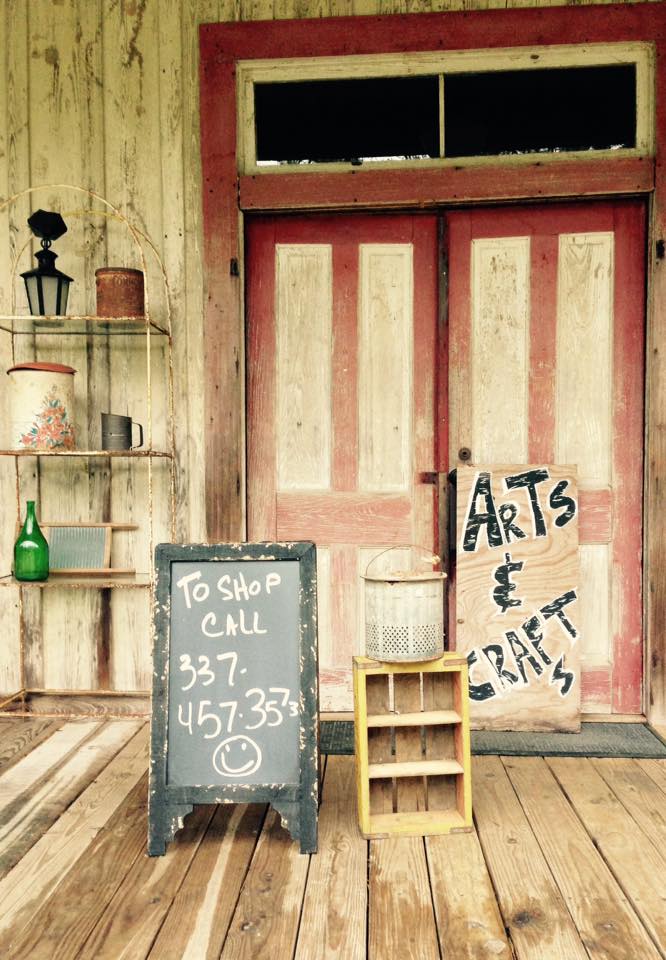 TO SHOP
CALL
337.
457.3573
ARTS
&
CRAFTS